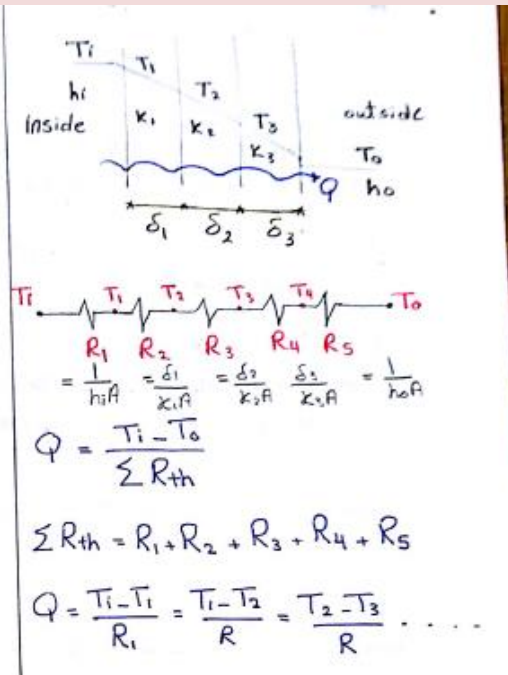 Ti T₁
hi T₂
inside K₁ K₂ T₃ outside
K₃ To
Q ho
δ₁ δ₂ δ₃
Ti T₁ T₂ T₃ T₄ To
R₁ R₂ R₃ R₄ R₅
= 1/hiA = δ₁/K₁A = δ₂/K₂A δ₃/K₃A = 1/hoA
Q = Ti - To / Σ Rth
Σ Rth = R₁ + R₂ + R₃ + R₄ + R₅
Q = Ti - T₁ / R₁ = T₁ - T₂ / R = T₂ - T₃ / R . . . . .